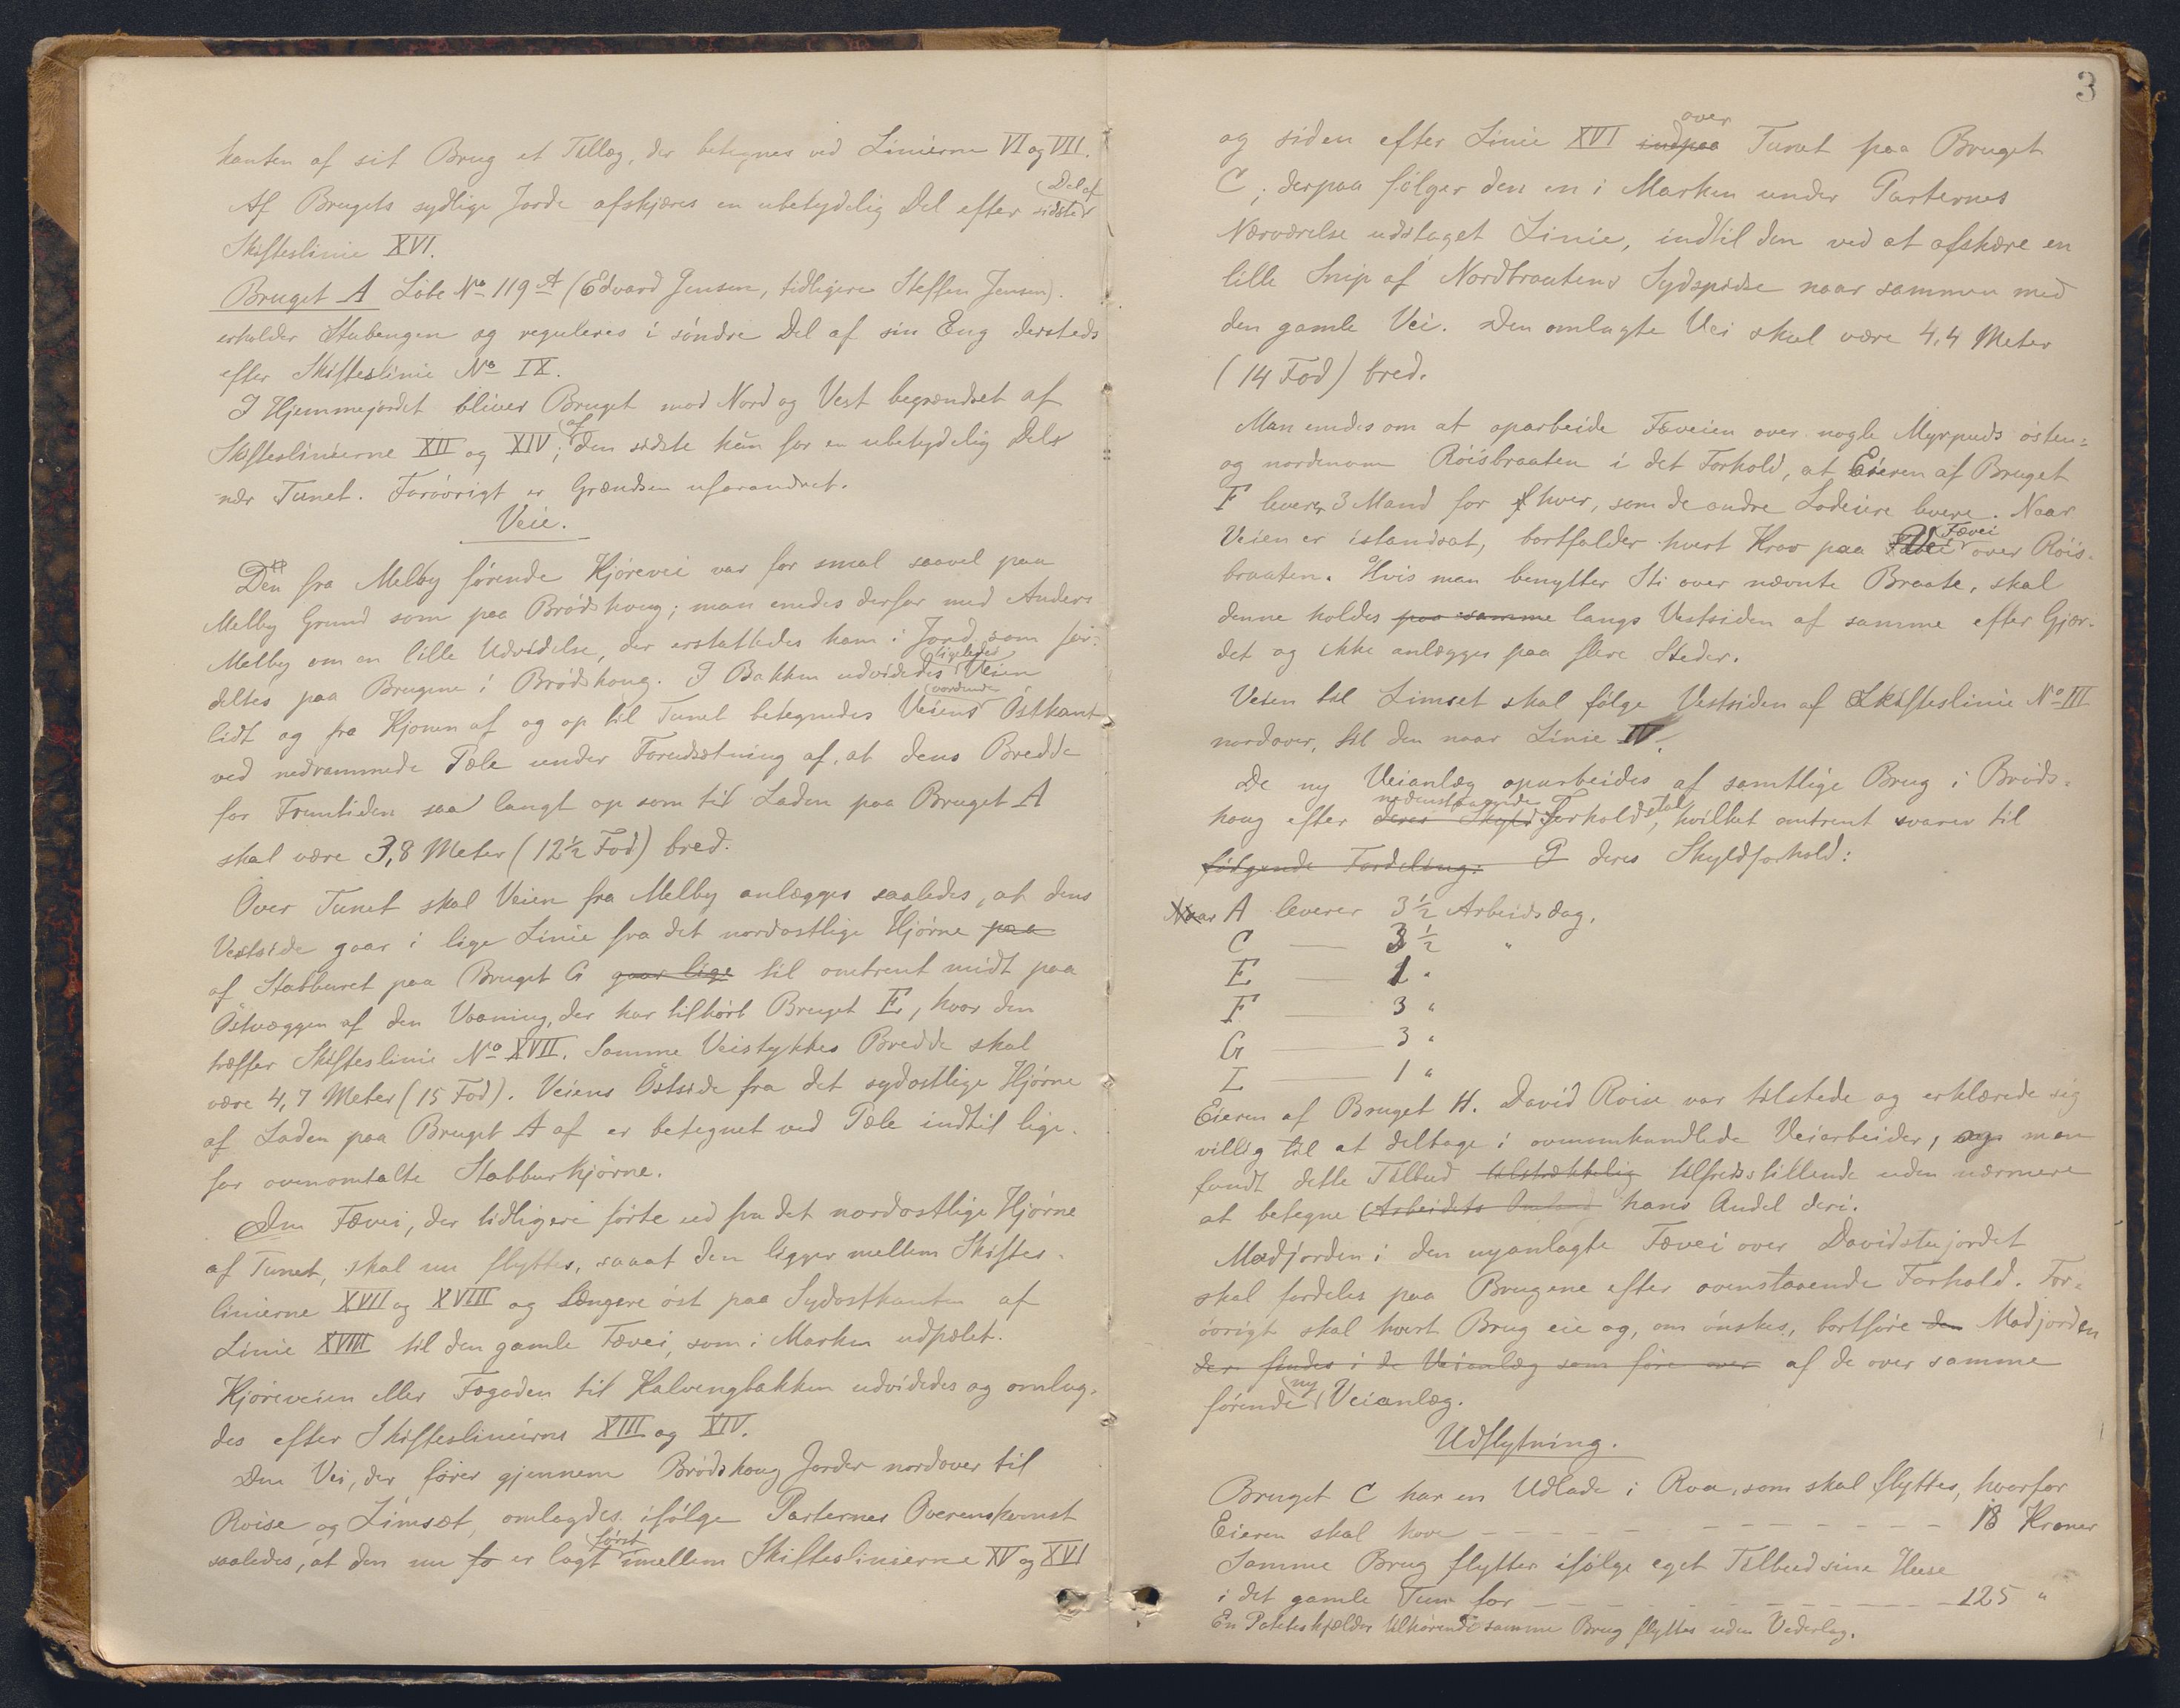 kanten af sit Brug et Tillæg, der betegnes ved Linierne VI og VII.
Af Brugets sydlige Jorde afskjæres en ubetydelig Del efter sidste Del af
Skifteslinie XVI.
Bruget A Löbe No 119 A (Edvard Jensen, tidligere Steffen Jensen).
erholder Stubengen og reguleres i söndre Del af sin Eng dersteds
efter Skifteslinie No IX.
I Hjemmejordet bliver Bruget mod Nord og Vest begrændset af
Skifteslinierne XII og XIV; af den sidste kŭn for en ubetydelig Del
nær Tunet. Foröorigt er Grændsen uforandret.
Veie.
Den fra Melby förende Kjörevei var for smal saavel paa
Melby Grund som paa Brödshoug; man enedes derfor med Anders
Melby om en lille Udvidelse, der erstattedes ham i Jord, som for-
deltes paa Brugene i Brödshoug. I Bakken udvidedes ligeledes Veien
lidt og fra Kjonen af og op til Tunet betegnedes Veiens vordende Östkant
ved nedrammede Pæle under Forudsætning af, at dens Bredde
for Fremtiden saa langt op som til Laden paa Bruget A
skal være 3,8 Meter (12½ Fod) bred.
Over Tunet skal Veien fra Melby anlægges saaledes, at dens
Vestside gaar i lige Linie fra det nordostlige Hjörne paa
af Stabburet paa Bruget G gaar lige til omtrent midt paa
Östvæggen af den Vaaning, der har tilhört Bruget E, hvor den
træffer Skifteslinie No XVII. Samme Veistykkes Bredde skal
være 4,7 Meter (15 Fod). Veiens Östside fra det sydostlige Hjörne
af Laden paa Bruget A af er betegnet ved Pæle indtil lige
for ovenomtalte Stabburhjörne.
Den Fævei, der tidligere förte ud fra det nordostlige Hjörne
af Tunet, skal nu flyttes, saaat den ligger mellem Skiftes-
linierne XVII og XVIII og længere öst paa Sydostkanten af
Linie XVIII til den gamle Fævei, som i Marken udpælet.
Kjöreveien eller Fægaden til Kalvengbakken udvidedes og omlag-
des efter Skifteslinierne XIII og XIV.
Den Vei, der förer gjennem Brödshoug Jorder nordover til
Roise og Limsæt, omlagdes ifölge Parternes Overenskomst
saaledes, at den nu fo er lagt först imellem Skifteslinierne XV og XVI
3
og siden efter Linie XVI indpaa over Tunet paa Bruget
C; derpaa fölger den en i Marken under Parternes
Nærværelse udstaget Linie, indtil den ved at afskære en
lille Snip af Nordbraatens Sydspidse naar sammen med
den gamle Vei. Den omlagte Vei skal være 4,4 Meter
(14 Fod) bred.
Man enedes om at oparbeide Fæveien over nogle Myrpuds östen-
og nordenom Röisbraaten i det Forhold, at Eieren af Bruget
F leverer 3 Mand for hver, som de andre Lodeiere levere. Naar
Veien er istandsat, bortfalder hvert Krav paa Fævei over Röis-
braaten. Hvis man benytter Sti over nævnte Braate, skal
denne holdes paa samme langs Vestsiden af samme efter Gjær-
det og ikke anlægges paa flere Steder.
Veien til Limset skal fölge Vestsiden af Skifteslinie No III
nordover, til den naar Linie IV.
De ny Veianlæg oparbeides af samtlige Brug i Bröds-
houg efter deres Skyld nedenstaaende Forholdstal, hvilket omtrent svarer til
fölgende Fordeling: deres Skyldforhold:
Naar A leverer 3½ Arbeidsdag,
C — 3½ "
E — 1 "
F — 3 "
G — 3 "
I — 1 "
Eieren af Bruget H. David Roise var tilstede og erklærede sig
villig til at deltage i ovenomhandlede Veiarbeider, og man
fandt dette Tilbud tilstrækkelig tilfredsstillende uden nærmere
at betegne Arbeidets hans Andel deri.
Madjorden i den nyanlagte Fævei over Davidstujordet
skal fordeles paa Brugene efter ovenstaaende Forhold. For-
övrigt skal hvert Brug eie og, om önskes, bortföre den Madjorden
der findes i de Veianlæg som före over af de over samme
förende ny Veianlæg.
Udflytning.
Bruget C har en Udlade i Roa, som skal flyttes, hvorfor
Eieren skal have — — — 18 Kroner
Samme Brug flytter ifölge eget Tilbud sine Huse
i det gamle Tun for — — — 125 "
En Poteteskjelder tilhörende samme Brug flyttes uden Vederlag.